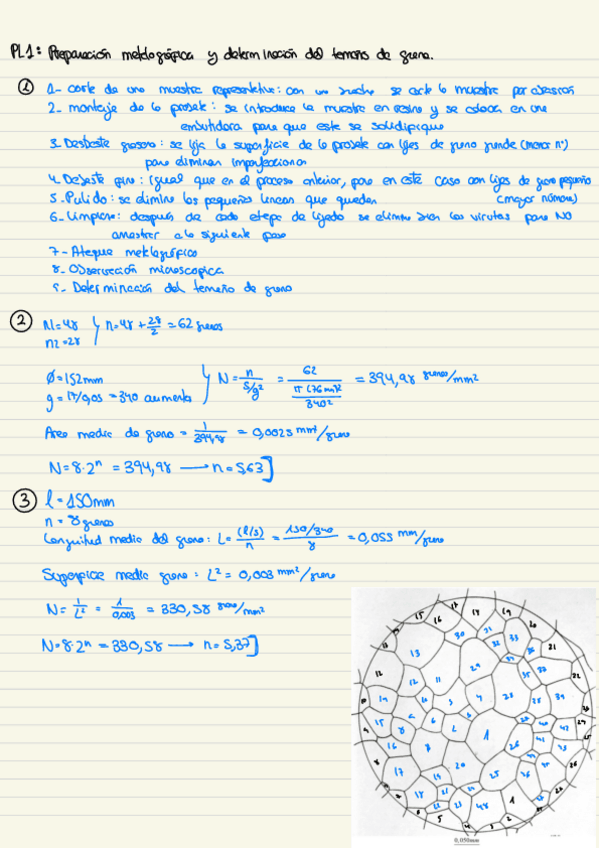 PL1: Preparación metalográfica y determinación del tamaño de grano.
① 1- corte de una muestra representativa: con un disco se corta la muestra por abrasión
2- montaje de la probeta: se introduce la muestra en resina y se coloca en una
embutidora para que este se solidifique
3- Desbaste grosero: se lija la superficie de la probeta con lijas de grano grande (menor nº)
para eliminar imperfecciones
4. Desbaste fino: igual que en el proceso anterior, pero en este caso con lijas de grano pequeño
(mayor número)
5- Pulido: se elimina las pequeñas lineas que quedan
6- Limpieza: después de cada etapa de lijado se eliminan las virutas para NO
arrastrar a la siguiente fase
7- Ataque metalográfico
8- Observación microscopica
9- Determinación del tamaño de grano
② n1=48 } n=48 + 28/2 = 62 granos
n2=28
Ø=152mm
g = 17/0,05 = 340 aumentos } N = n/(S/g²) = 62/(π(76mm)²/340²) = 394,98 granos/mm²
Area media de grano = 1/394,98 = 0,0025 mm²/grano
N=8·2ⁿ = 394,98 → n=5,63]
③ l = 150mm
n = 8 granos
Longuitud media del grano: L= (l/g)/n = 150/340/8 = 0,055 mm/grano
Superficie media grano: L² = 0,003 mm²/grano
N= 1/L² = 1/0,003 = 330,58 grano/mm²
N=8·2ⁿ = 330,58 → n=5,37]
0,050mm